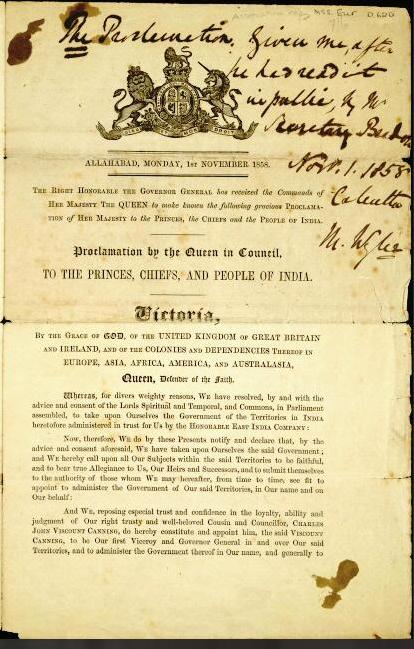 Mss. Eur D.620
The Proclamation. Given me, after
he had read it
in public, by Mr
Secretary
Novr. 1. 1858
Calcutta
M. Wylie
DIEU ET MON DROIT
ALLAHABAD, MONDAY, 1st NOVEMBER 1858.
The Right Honorable the Governor General has received the Commands of
Her Majesty The QUEEN to make known the following gracious Proclama-
tion of Her Majesty to the Princes, the Chiefs and the People of India.
Proclamation by the Queen in Council,
TO THE PRINCES, CHIEFS, AND PEOPLE OF INDIA.
Victoria,
By the Grace of GOD, of the UNITED KINGDOM of GREAT BRITAIN
and IRELAND, and of the COLONIES and DEPENDENCIES Thereof in
EUROPE, ASIA, AFRICA, AMERICA, and AUSTRALASIA,
Queen, Defender of the Faith.
Whereas, for divers weighty reasons, We have resolved, by and with the
advice and consent of the Lords Spiritual and Temporal, and Commons, in Parliament
assembled, to take upon Ourselves the Government of the Territories in India
heretofore administered in trust for Us by the Honorable East India Company:
Now, therefore, We do by these Presents notify and declare that, by the
advice and consent aforesaid, We have taken upon Ourselves the said Government;
and We hereby call upon all Our Subjects within the said Territories to be faithful,
and to bear true Allegiance to Us, Our Heirs and Successors, and to submit themselves
to the authority of those whom We may hereafter, from time to time, see fit to
appoint to administer the Government of Our said Territories, in Our name and on
Our behalf:
And We, reposing especial trust and confidence in the loyalty, ability and
judgment of Our right trusty and well-beloved Cousin and Councillor, Charles
John Viscount Canning, do hereby constitute and appoint him, the said Viscount
Canning, to be Our first Viceroy and Governor General in and over Our said
Territories, and to administer the Government thereof in Our name, and generally to